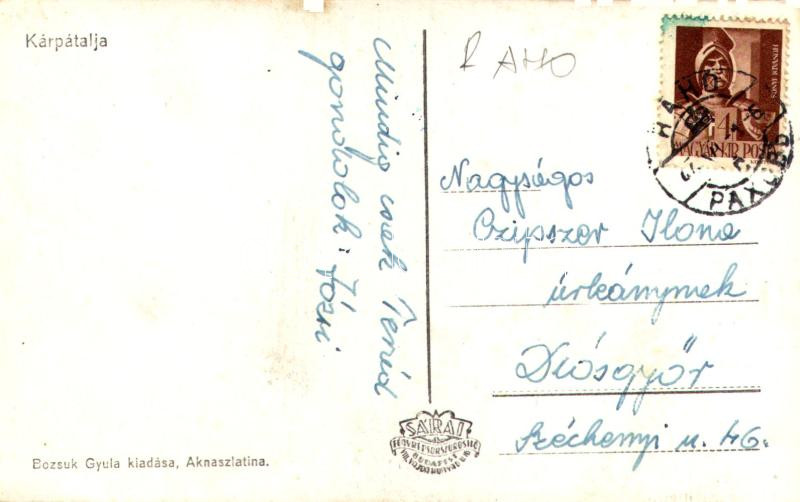 Kárpátalja
Mindig csak Teréd
gondolok: Józsi
R AHO
KINIZSI PÁL
4
MAGYAR KIR. POSTA
RAHÓ
РАХОВО
Nagyságos
Czipszer Ilona
úrleánynek
Diósgyőr
Széchenyi u. 46.
SÁRAI
BUDAPEST
Bozsuk Gyula kiadása, Aknaszlatina.